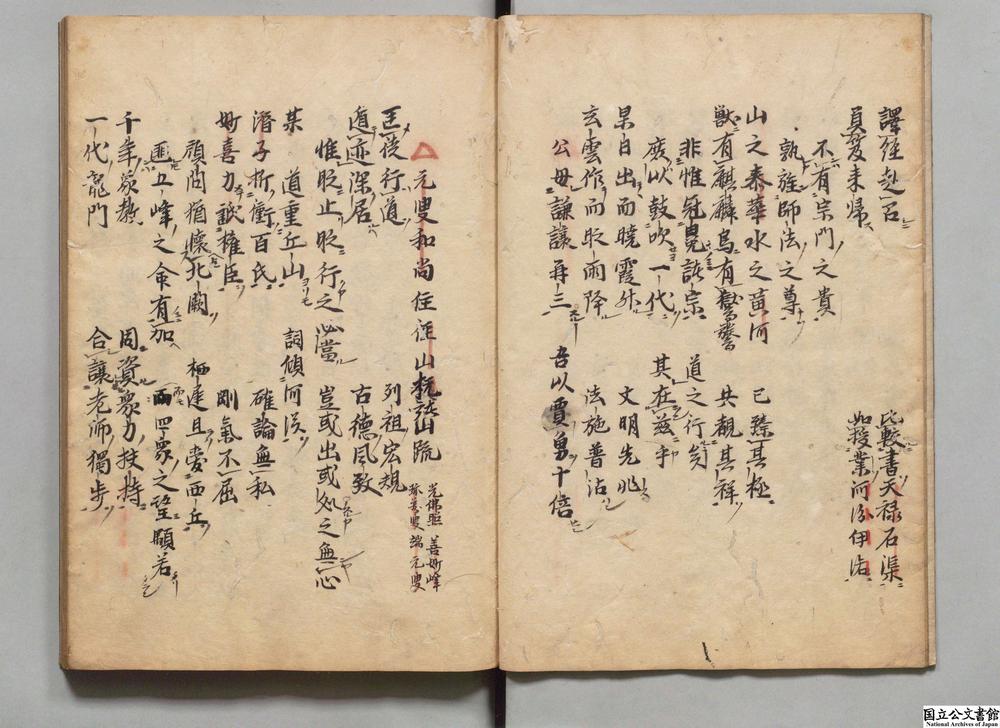 譯經赴召　比較書天祿石渠
員笈来歸　如授業河汾伊洛
不有宗門之貴
孰旌師法之尊
山之泰華水之黄河　已臻其極
獣有麒麟鳥有鸑鷟　共観其祥
非惟冠冕諸宗　道之行矣
庶以鼓吹一代　其在茲乎
杲日出而曉霞外　文明先兆
玄雲作而政雨降　法施普沾
公毋謙讓再三　吾以賈勇十倍
元叟和尚住徑山杭諸山疏
光佛照　善妙峰
珎蔵叟　端元叟
匡徒行道　列祖宏規
遁迹深居　古德風致
惟眂止眂行之必當　豈或出或処之無心
某　道重丘山　詞傾河漢
潛子折衝百氏　確論無私
妙喜力詆權臣　剛氣不屈
頎問猶懷北闕　栖遅且愛西丘
匪五峰之命有加　而四衆之望顒若
千年象教　周資衆力扶持
一代龍門　合讓老師獨步
国立公文書館
National Archives of Japan